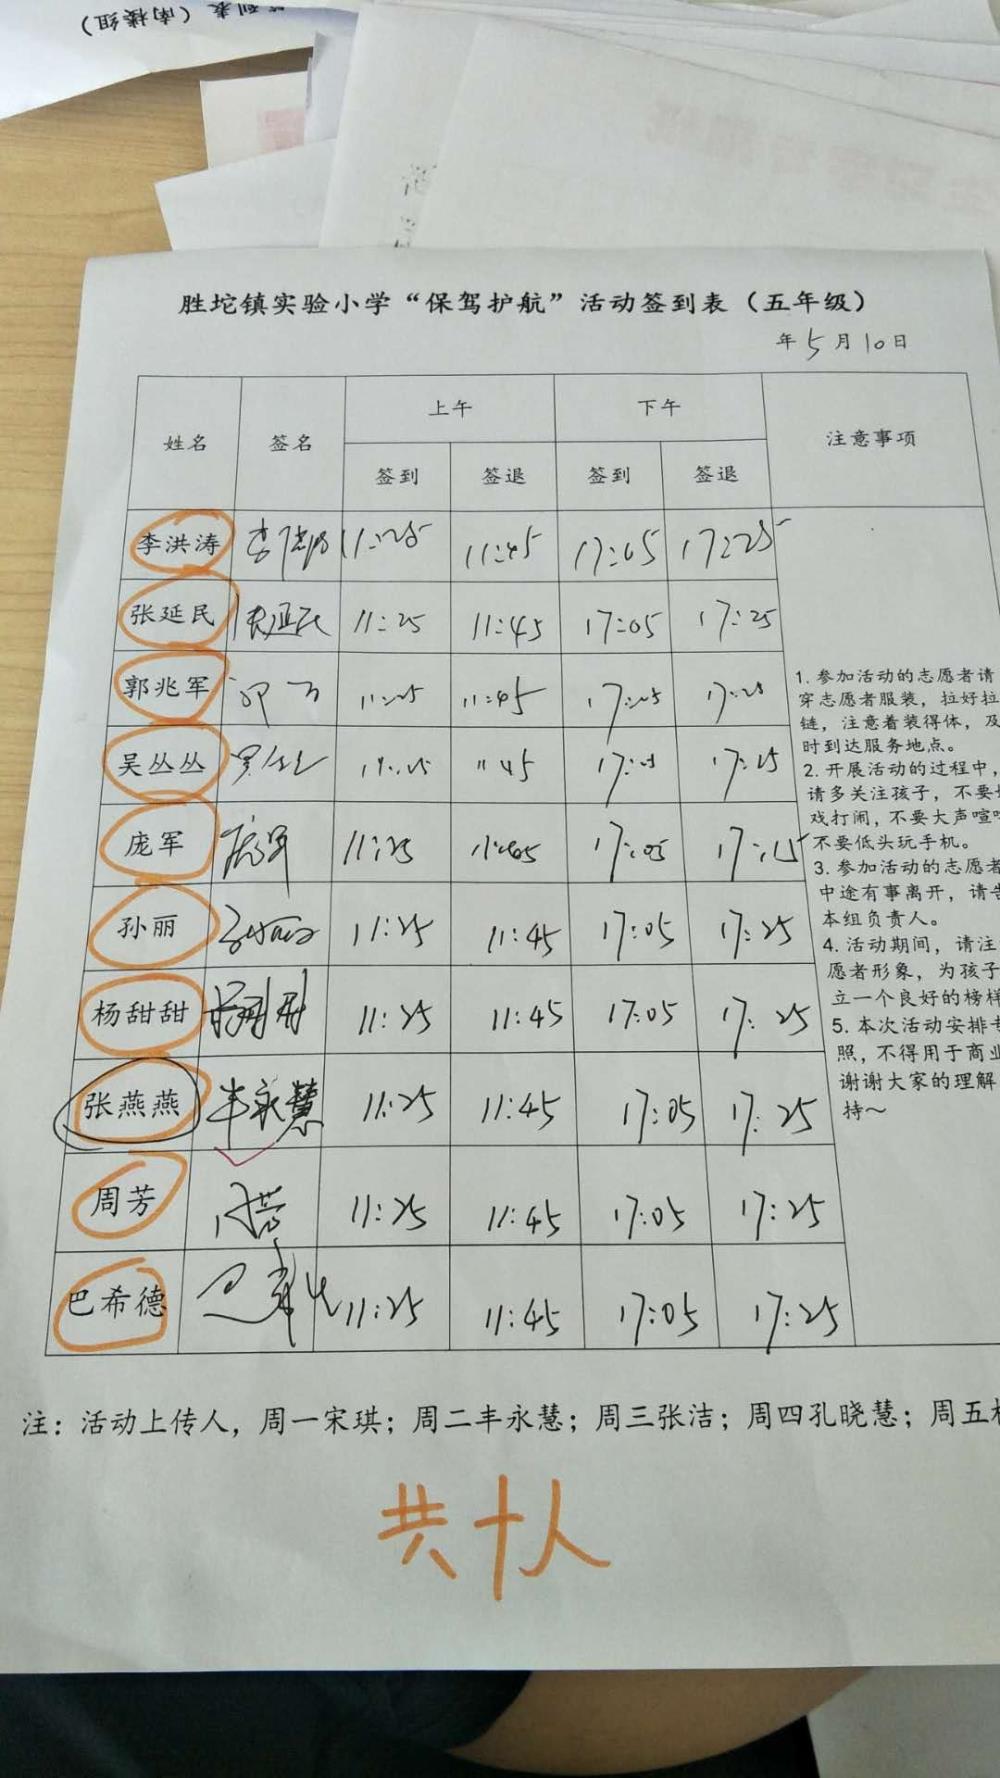 签到表（南楼组）
胜坨镇实验小学“保驾护航”活动签到表（五年级）
年5月10日
姓名 签名 上午 下午 注意事项
签到 签退 签到 签退
李洪涛 11:25 11:45 17:05 17:25
张延民 张延民 11:25 11:45 17:05 17:25
郭兆军 11:25 11:45 17:05 17:25
吴丛丛 11:25 11:45 17:05 17:25
庞军 庞军 11:25 11:45 17:05 17:25
孙丽 孙丽 11:25 11:45 17:05 17:25
杨甜甜 杨甜甜 11:25 11:45 17:05 17:25
张燕燕 丰永慧 11:25 11:45 17:05 17:25
周芳 周芳 11:25 11:45 17:05 17:25
巴希德 11:25 11:45 17:05 17:25
1. 参加活动的志愿者请
穿志愿者服装，拉好拉
链，注意着装得体，及
时到达服务地点。
2. 开展活动的过程中，
请多关注孩子，不要
戏打闹，不要大声喧
不要低头玩手机。
3. 参加活动的志愿者
中途有事离开，请告
本组负责人。
4. 活动期间，请注
愿者形象，为孩子
立一个良好的榜样
5. 本次活动安排专
照，不得用于商业
谢谢大家的理解
持～
注：活动上传人，周一宋琪；周二丰永慧；周三张洁；周四孔晓慧；周五
共十人